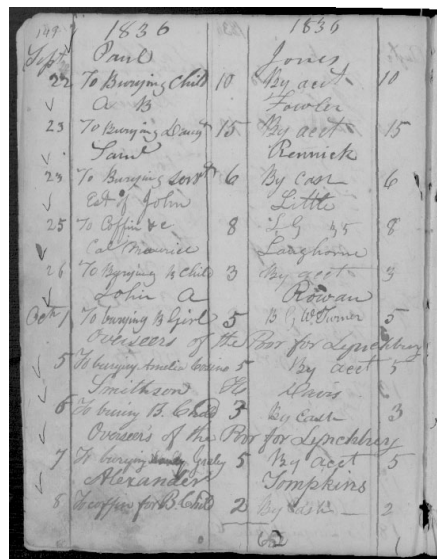 149 1836 1836
Sept. Paul Jones
22 To Burying Child 10 By acct 10
A B Fowler
23 To Burying Daugt 15 By acct 15
Saml Rennick
23 To Burying Servt 6 By Cash 6
Est of John Little
25 To Coffin &c 8 L G 8
Cal Maurice Langhorne
26 To Burying B Child 3 By acct 3
John A Rowan
Octr 1 To burying B Girl 5 B G Wm Turner 5
Overseers of the Poor for Lynchburg
5 To burying Amelia 5 By acct 5
Smithson Davis
6 To burying B. Child 3 By Cash 3
Overseers of the Poor for Lynchburg
7 To burying 5 By acct 5
Alexander Tompkins
8 To coffin for B. Child 2 By 2
62